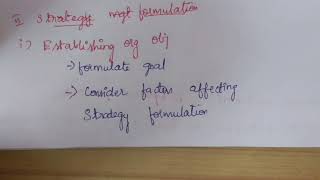 II Strategy mgt formulation
i) Establishing org obj
→ formulate goal
→ Consider factors affecting
Strategy formulation